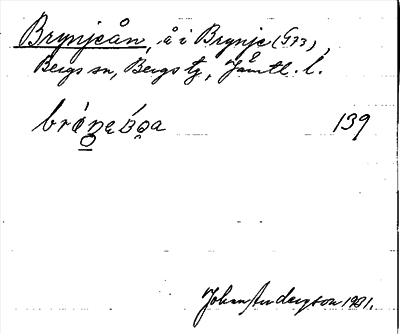 Brynjeån, å i Brynje (G33),
Bergs sn, Bergs tg, Jämtl. l.
139
Johan Anderson 1931.